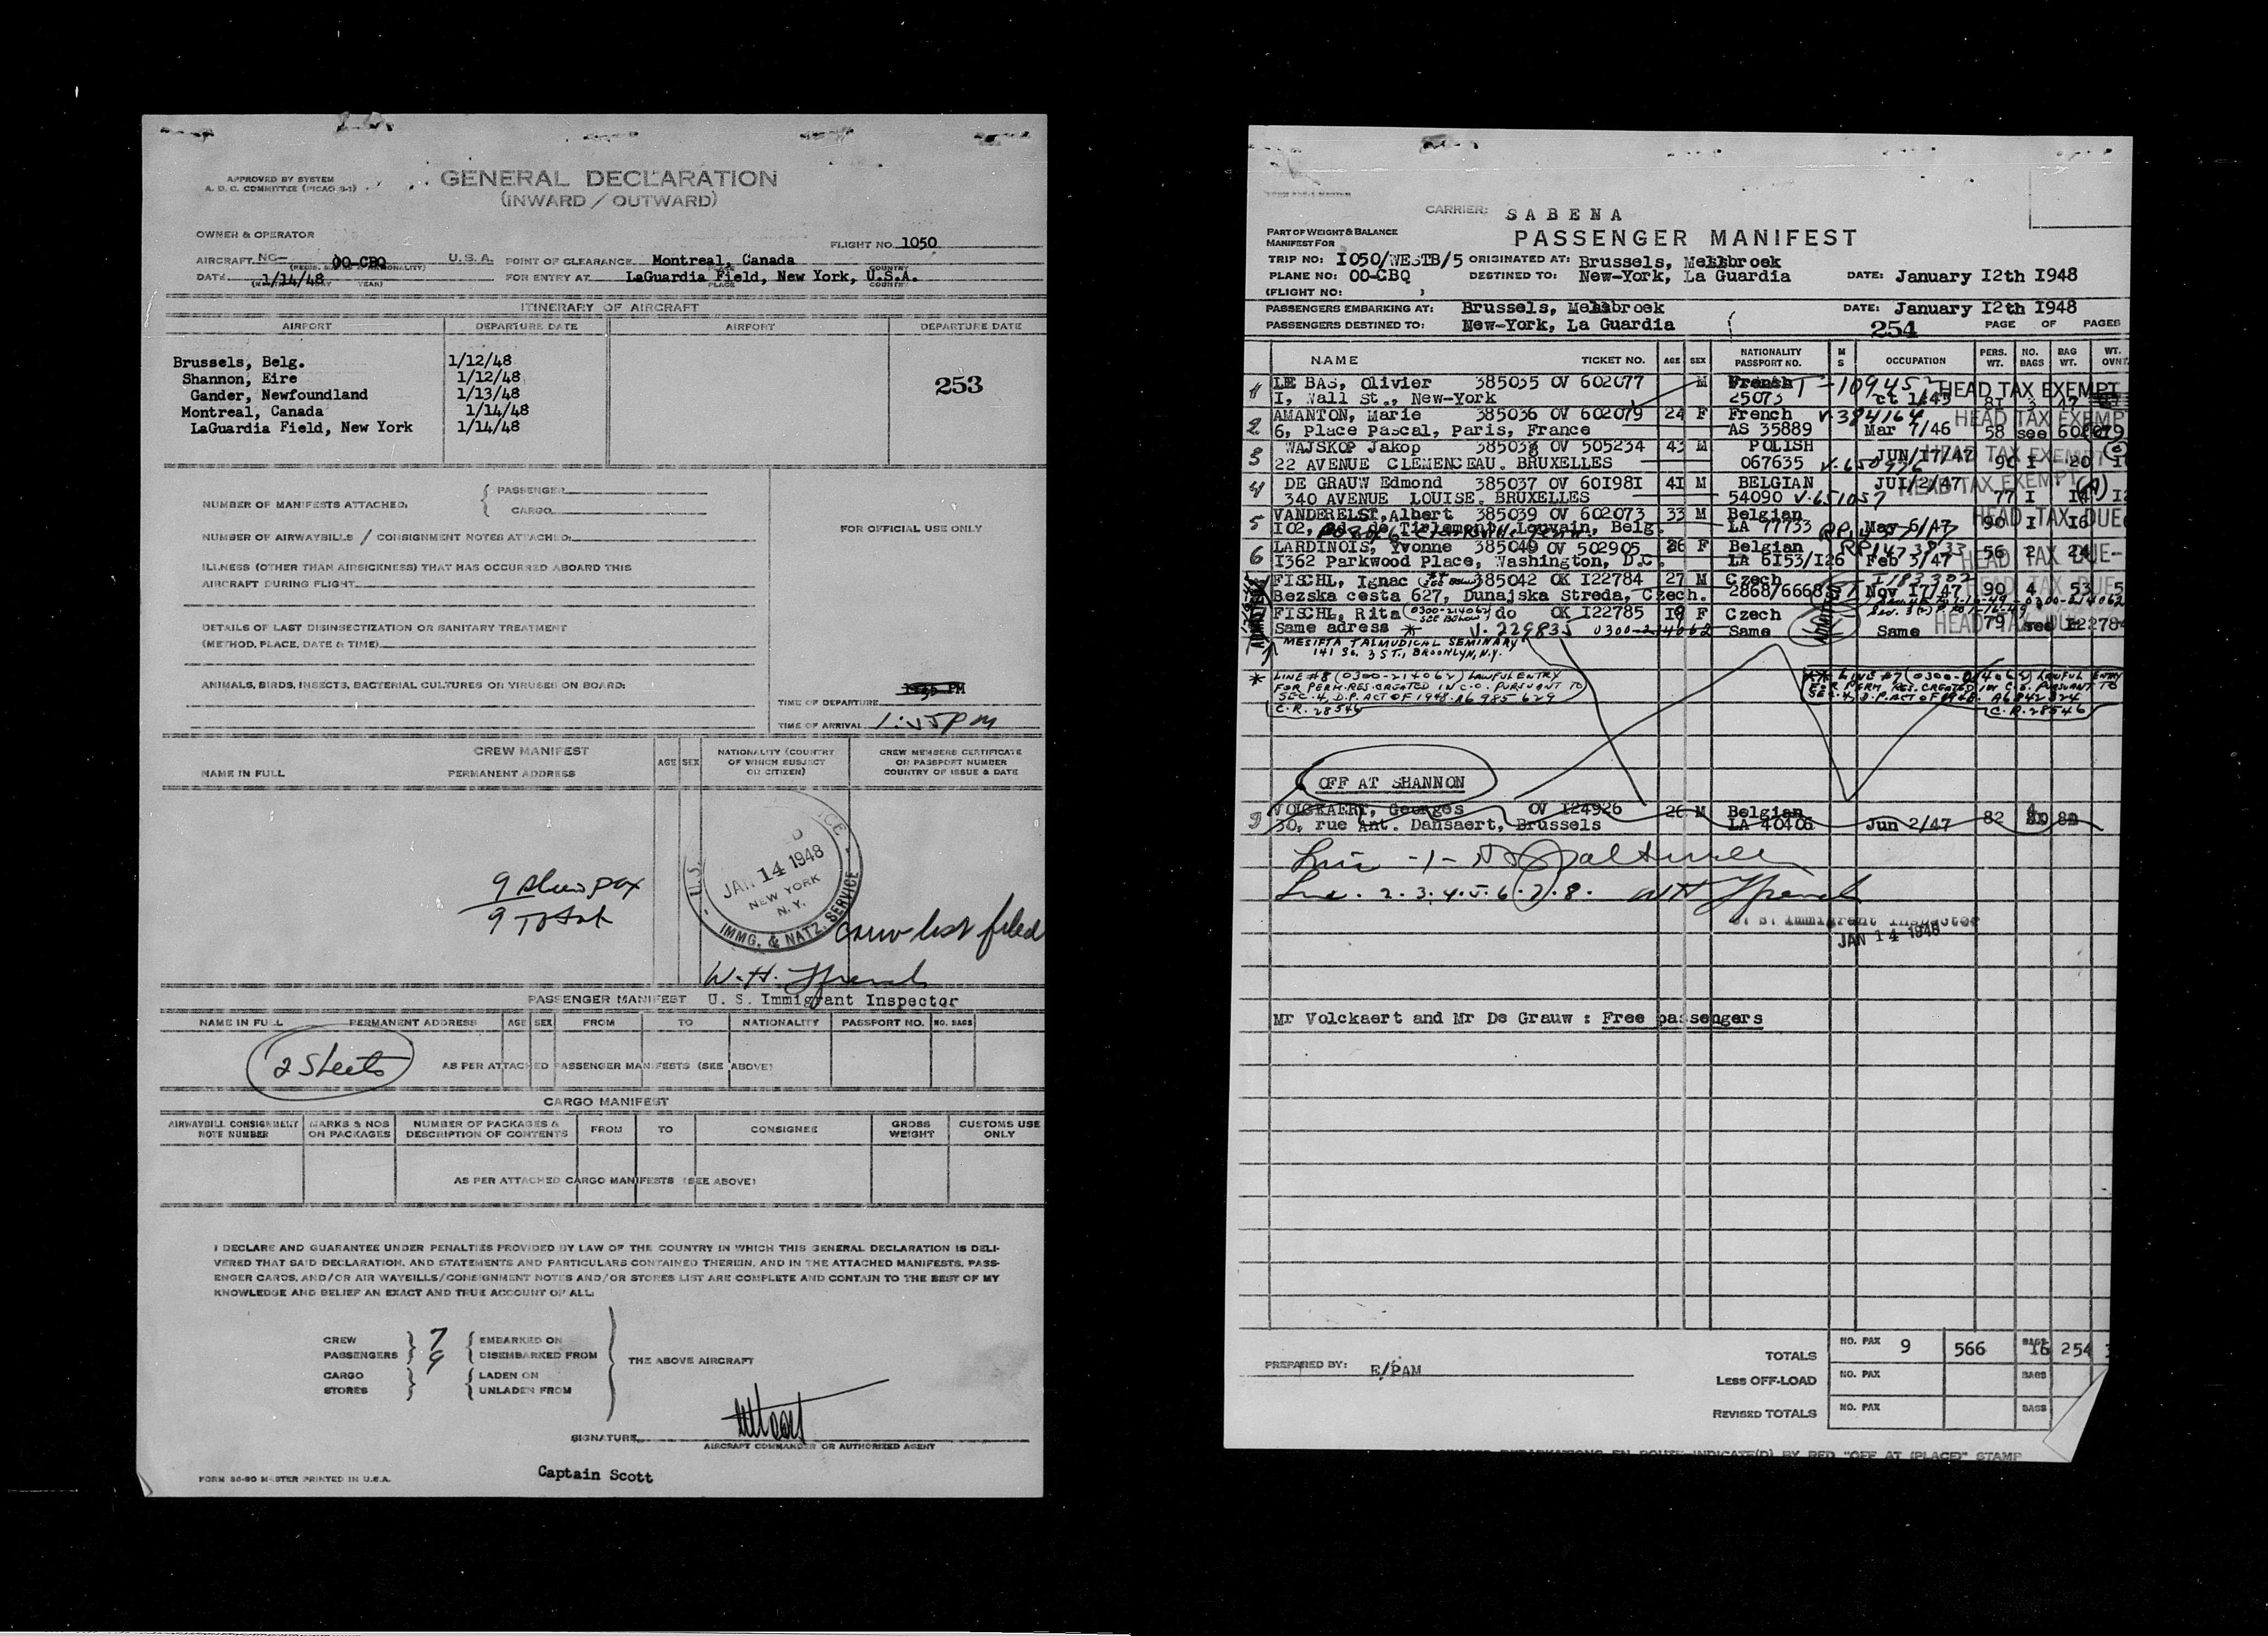 APPROVED BY SYSTEM
A. D. C. COMMITTEE (PICAO S-1)
GENERAL DECLARATION
(INWARD / OUTWARD)
OWNER & OPERATOR
FLIGHT NO. 1050
AIRCRAFT. NC- OO-CBQ U.S.A. POINT OF CLEARANCE Montreal, Canada
DATE 1/14/48 FOR ENTRY AT LaGuardia Field, New York, U.S.A.
PLACE COUNTRY
ITINERARY OF AIRCRAFT
AIRPORT DEPARTURE DATE AIRPORT DEPARTURE DATE
Brussels, Belg. 1/12/48
Shannon, Eire 1/12/48
Gander, Newfoundland 1/13/48
Montreal, Canada 1/14/48
LaGuardia Field, New York 1/14/48
253
NUMBER OF MANIFESTS ATTACHED: { PASSENGER
CARGO
NUMBER OF AIRWAYBILLS / CONSIGNMENT NOTES ATTACHED:
FOR OFFICIAL USE ONLY
ILLNESS (OTHER THAN AIRSICKNESS) THAT HAS OCCURRED ABOARD THIS
AIRCRAFT DURING FLIGHT
DETAILS OF LAST DISINSECTIZATION OR SANITARY TREATMENT
(METHOD, PLACE, DATE & TIME)
ANIMALS, BIRDS, INSECTS, BACTERIAL CULTURES OR VIRUSES ON BOARD:
TIME OF DEPARTURE
TIME OF ARRIVAL 1:55 pm
CREW MANIFEST
NAME IN FULL PERMANENT ADDRESS AGE SEX NATIONALITY (COUNTRY OF WHICH SUBJECT OR CITIZEN) CREW MEMBERS CERTIFICATE OR PASSPORT NUMBER COUNTRY OF ISSUE & DATE
U.S. IMMG. & NATZ. SERVICE
JAN 14 1948
NEW YORK
N. Y.
9 Total
crew list filed
W. H.
U. S. Immigrant Inspector
PASSENGER MANIFEST
NAME IN FULL PERMANENT ADDRESS AGE SEX FROM TO NATIONALITY PASSPORT NO. NO. BAGS
2 Sheets
AS PER ATTACHED PASSENGER MANIFESTS (SEE ABOVE)
CARGO MANIFEST
AIRWAYBILL CONSIGNMENT NOTE NUMBER MARKS & NOS ON PACKAGES NUMBER OF PACKAGES & DESCRIPTION OF CONTENTS FROM TO CONSIGNEE GROSS WEIGHT CUSTOMS USE ONLY
AS PER ATTACHED CARGO MANIFESTS (SEE ABOVE)
I DECLARE AND GUARANTEE UNDER PENALTIES PROVIDED BY LAW OF THE COUNTRY IN WHICH THIS GENERAL DECLARATION IS DELI-
VERED THAT SAID DECLARATION, AND STATEMENTS AND PARTICULARS CONTAINED THEREIN, AND IN THE ATTACHED MANIFESTS, PASS-
ENGER CARDS, AND/OR AIR WAYBILLS/CONSIGNMENT NOTES AND/OR STORES LIST ARE COMPLETE AND CONTAIN TO THE BEST OF MY
KNOWLEDGE AND BELIEF AN EXACT AND TRUE ACCOUNT OF ALL:
CREW } 7 { EMBARKED ON
PASSENGERS 9 DISEMBARKED FROM
THE ABOVE AIRCRAFT
CARGO } { LADEN ON
STORES UNLADEN FROM
SIGNATURE
AIRCRAFT COMMANDER OR AUTHORIZED AGENT
Captain Scott
FORM 30-90 MASTER PRINTED IN U.S.A.
CARRIER: SABENA
PART OF WEIGHT & BALANCE
MANIFEST FOR
PASSENGER MANIFEST
TRIP NO: I050/WESTB/5 ORIGINATED AT: Brussels, Melsbroek
PLANE NO: OO-CBQ DESTINED TO: New-York, La Guardia DATE: January I2th I948
(FLIGHT NO: )
PASSENGERS EMBARKING AT: Brussels, Melsbroek DATE: January I2th I948
PASSENGERS DESTINED TO: New-York, La Guardia 254 PAGE OF PAGES
NAME TICKET NO. AGE SEX NATIONALITY PASSPORT NO. M S OCCUPATION PERS. WT. NO. BAGS BAG WT. WT. OVN
1 LE BAS, Olivier 385035 OV 602077 M French HEAD TAX EXEMPT
I, Wall St., New-York 25073
2 AMANTON, Marie 385036 OV 602079 24 F French V-384164 HEAD TAX EXEMP
6, Place Pascal, Paris, France AS 35889 Mar 7/46 58 see 602079
3 WAJSKOP Jakop 385038 OV 505234 43 M POLISH JUN/17/47 HEAD TAX EXEMPT
22 AVENUE CLEMENCEAU. BRUXELLES 067635 90 I 20
4 DE GRAUW Edmond 385037 OV 60I98I 4I M BELGIAN JUI/2/47 HEAD TAX EXEMPT
340 AVENUE LOUISE. BRUXELLES 54090 V.651057 77 I I4
5 VANDERELST, Albert 385039 OV 602073 33 M Belgian HEAD TAX DUE
I02, Bd. de Tirlemont, Louvain, Belg. LA 77733 May 6/47 90 I I6
6 LARDINOIS, Yvonne 385040 OV 502905 26 F Belgian
I362 Parkwood Place, Washington, D.C. LA 6I53/I26 Feb 3/47 56 2 24 HEAD TAX DUE-
FISCHL, Ignac 385042 OK I22784 27 M Czech I183302 HEAD TAX DUE
Bezska cesta 627, Dunajska Streda, Czech. 2868/6668 Nov I7/47 90 4 53 5
FISCHL, Rita (0300-214062 SEE BELOW) do OK I22785 I9 F Czech
Same adress * V. 229835 0300-214062 Same Same 79 see I22784 HEAD TAX DUE
MESIFTA TALMUDICAL SEMINARY
141 SO. 3 ST., BROOKLYN, N.Y.
* LINE #8 (0300-214062) LAWFUL ENTRY
FOR PERM. RES. CREATED IN C.O. PURSUANT TO
SEC. 4, D.P. ACT OF 1948. A6 985 629
C.R. 28546
** LINE #7 (0300-214063) LAWFUL ENTRY
FOR PERM. RES. CREATED IN C.O. PURSUANT TO
SEC. 4, D.P. ACT OF 1948. A6 842 824
C.R. 28546
OFF AT SHANNON
9 VOLCKAERT, Georges OV I24926 26 M Belgian
30, rue Ant. Dansaert, Brussels LA 40406 Jun 2/47 82
Line -1-
Line. 2. 3. 4. 5. 6. 7. 8. WH
U. S. Immigrant Inspector
JAN 14 1948
Mr Volckaert and Mr De Grauw : Free passengers
PREPARED BY: E/PAM
TOTALS NO. PAX 9 566 BAGS 16 254
LESS OFF-LOAD NO. PAX BAGS
REVISED TOTALS NO. PAX BAGS
PASSENGER DEBARKATIONS EN ROUTE INDICATE(D) BY RED "OFF AT (PLACE)" STAMP